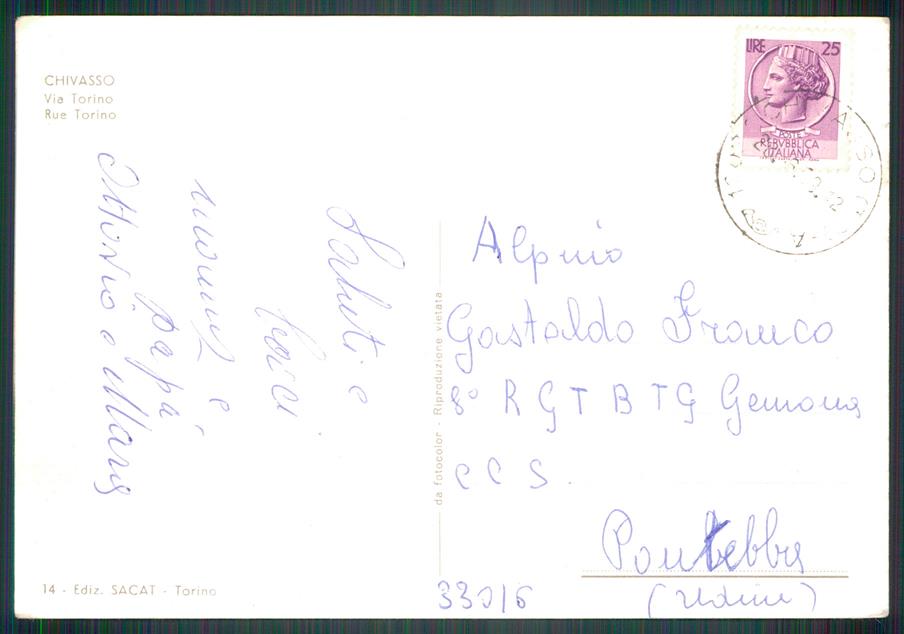 CHIVASSO
Via Torino
Rue Torino
Saluti e
baci
mamma e
papà
Ottavio e Mara
da fotocolor - Riproduzione vietata
LIRE 25
POSTE
REPVBBLICA
ITALIANA
Alpino
Gastaldo Franco
8° RGT BTG Gemona
CCS.
Pontebba
(Udine)
33016
14 - Ediz. SACAT - Torino